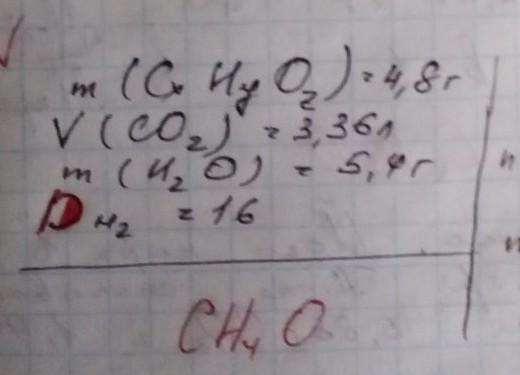 m (Cx Hy Oz) = 4,8 г
V (CO2) = 3,36 л
m (H2 O) = 5,4 г
D H2 = 16
CH4 O